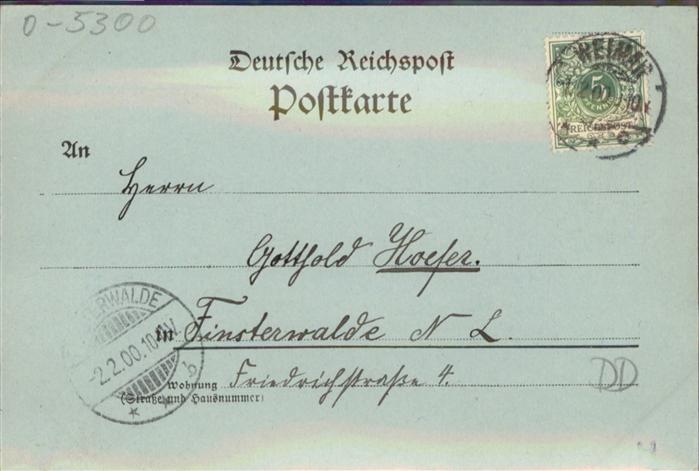 0-5300
Deutsche Reichspost
Postkarte
WEIMAR
5
REICHSPOST
An
Herrn
Gotthold Hoefer.
in Finsterwalde N L.
-2.2.00.10-
Wohnung Friedrichstraße 4.
(Straße und Hausnummer)
DD